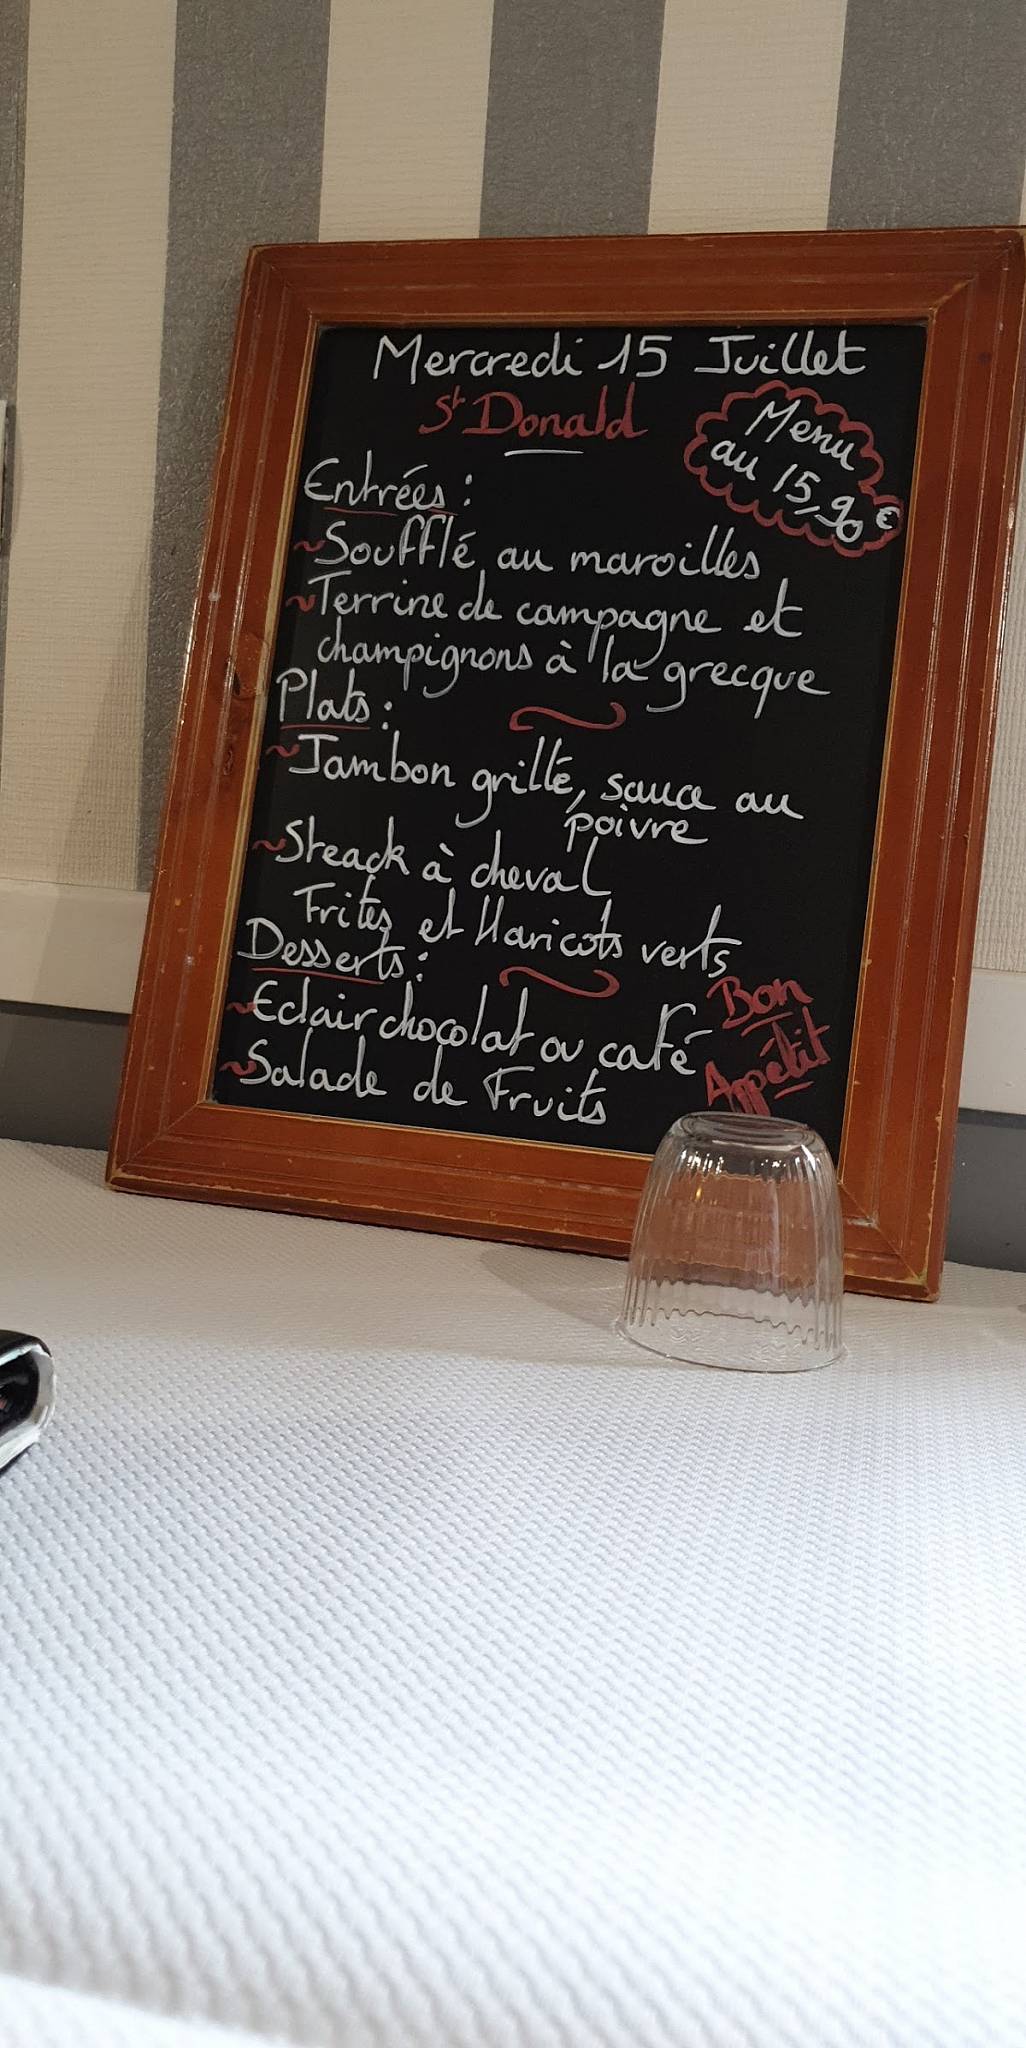 Mercredi 15 Juillet
St Donald
Menu
au 15,90 €
Entrées :
~Soufflé au maroilles
~Terrine de campagne et
champignons à la grecque
Plats :
~Jambon grillé, sauce au
poivre
~Steack à cheval
Frites et Haricots verts
Desserts :
~Eclair chocolat ou café
~Salade de Fruits
Bon
Appétit